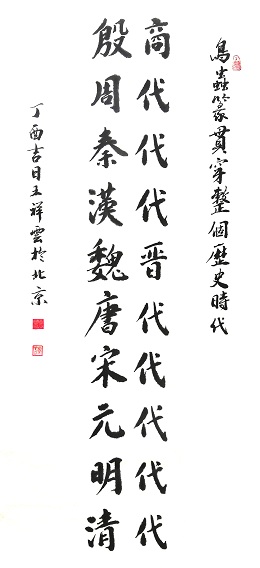 鳥蟲篆貫穿整個歷史時代
商代代代晋代代代代代
殷周秦漢魏唐宋元明清
丁酉吉日王祥雲於北京